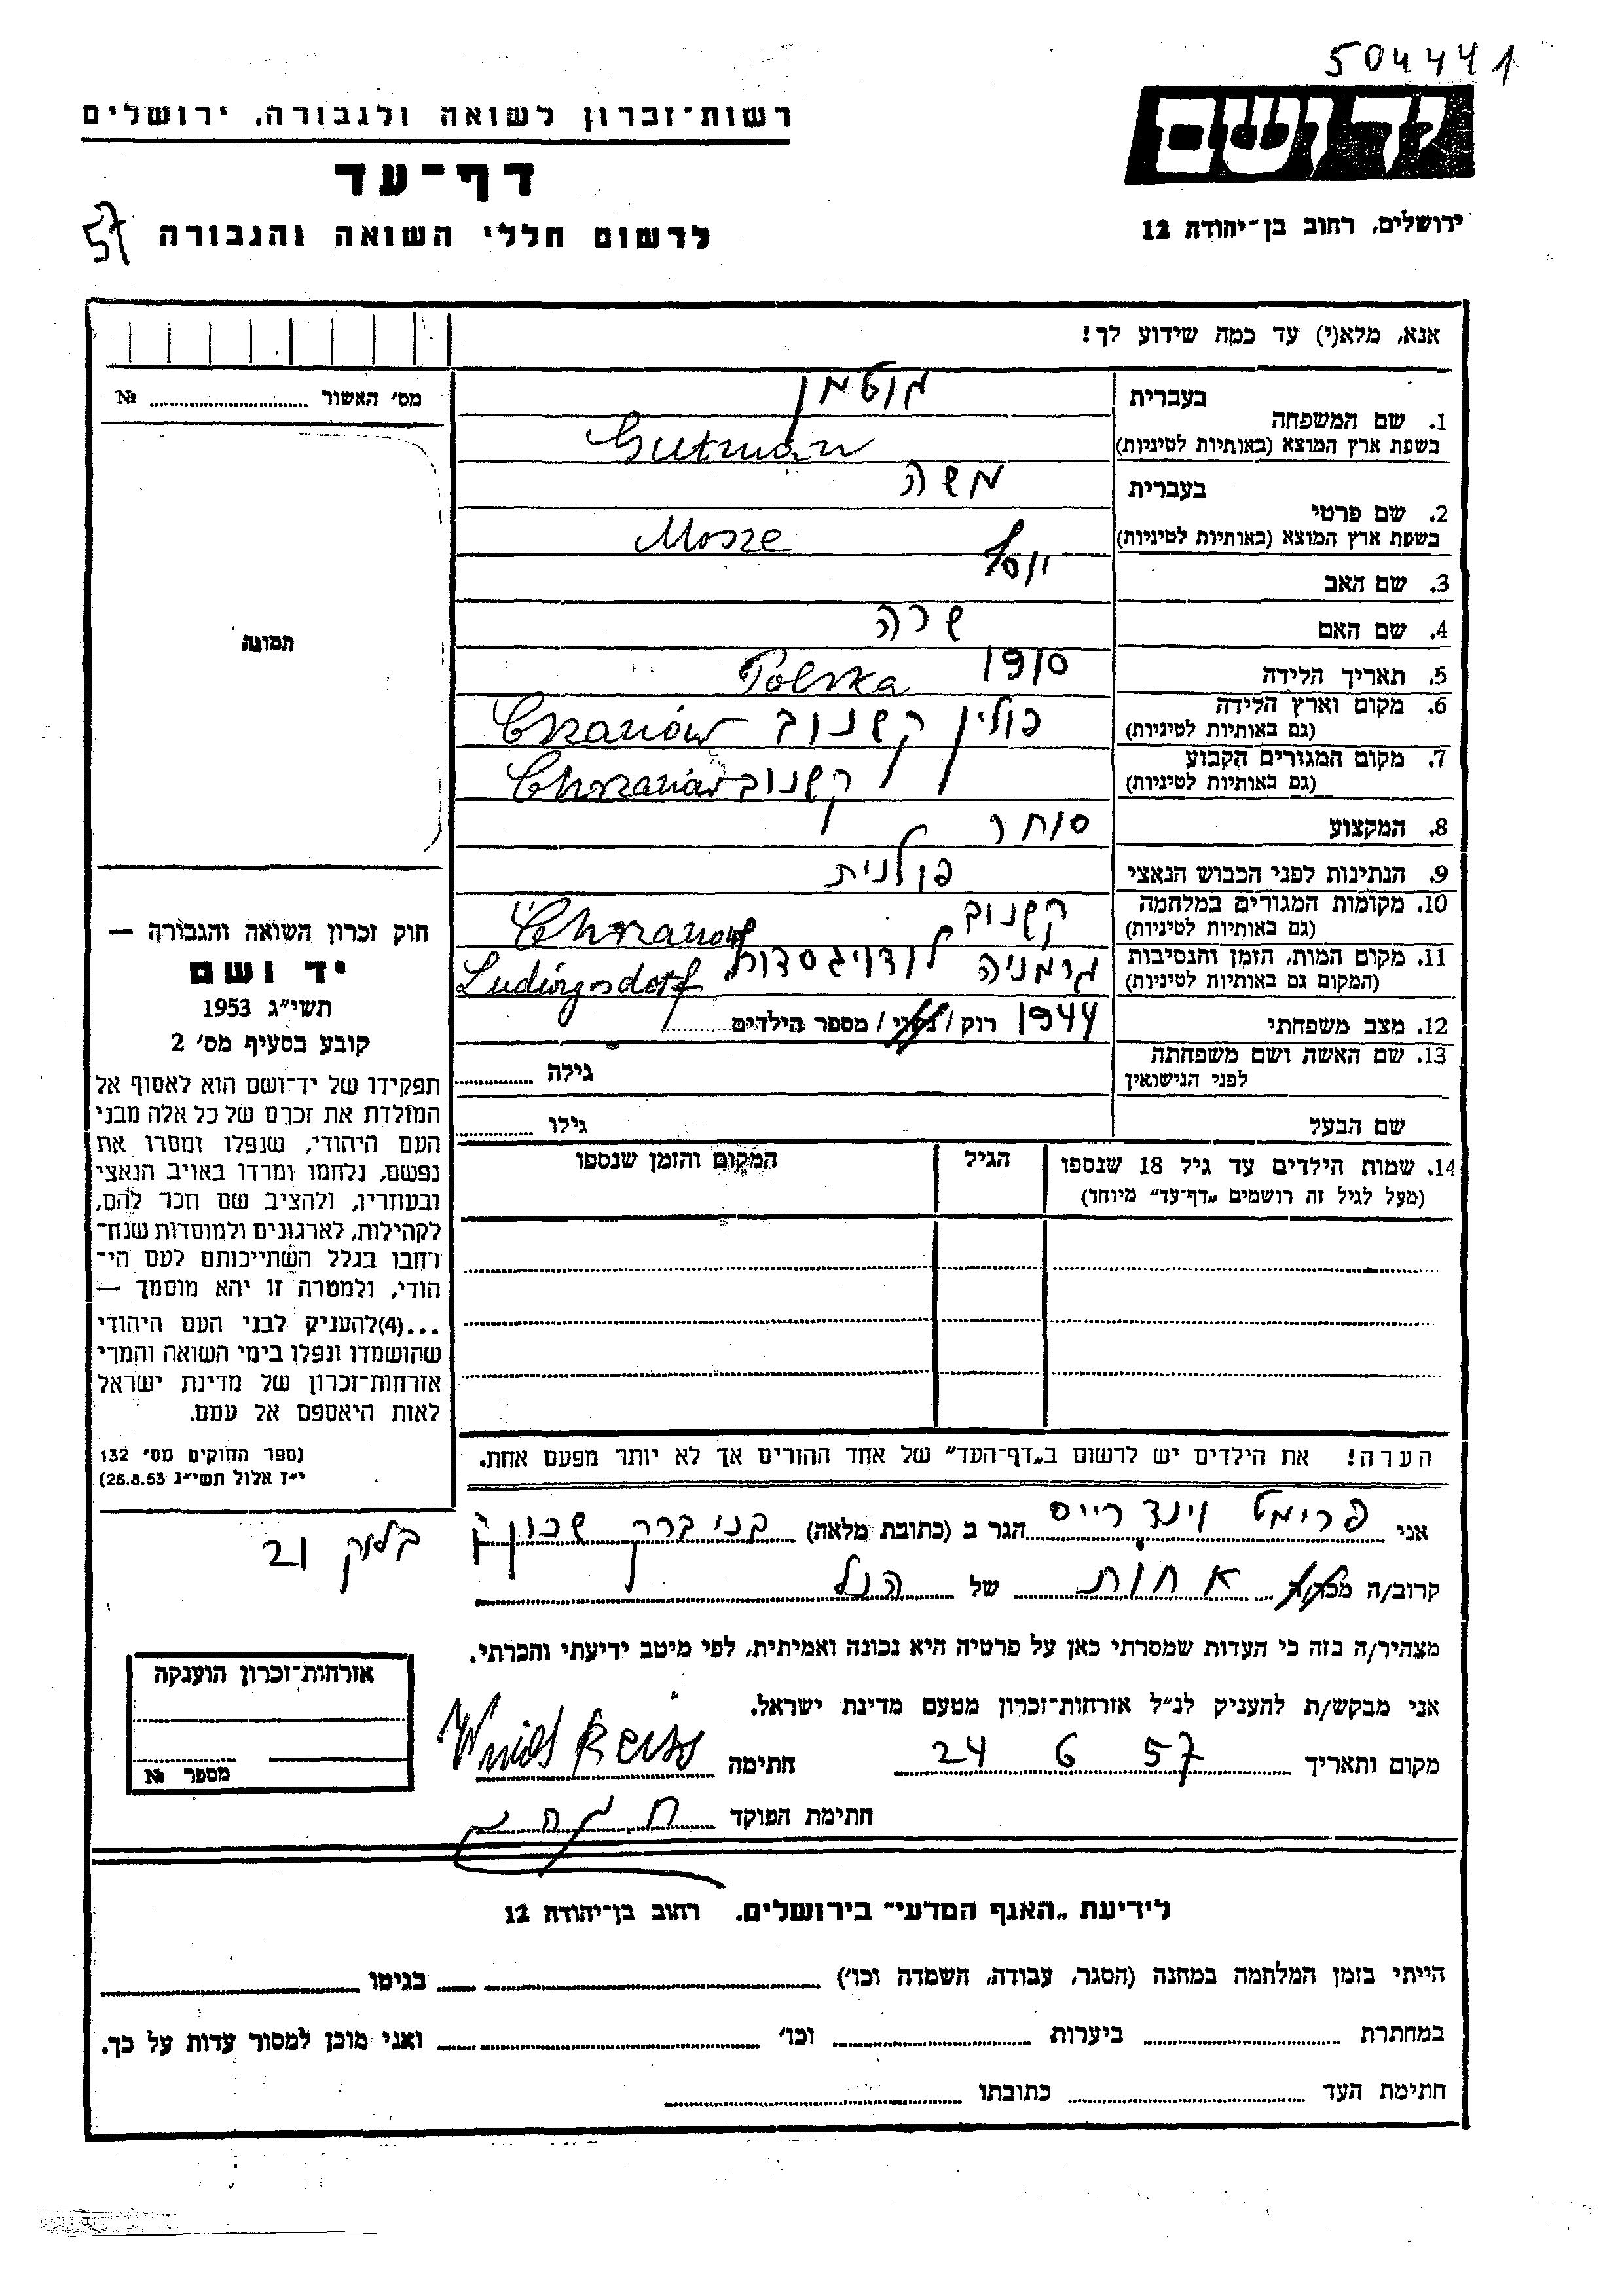 504441
יד ושם
ירושלים, רחוב בן-יהודה 12
רשות-זכרון לשואה ולגבורה, ירושלים
דף-עד
לרשום חללי השואה והגבורה
57
אנא, מלא(י) עד כמה שידוע לך!
מס' האשור № 
תמונה
1. שם המשפחה בעברית גוטמן
בשפת ארץ המוצא (באותיות לטיניות) Gutman
2. שם פרטי בעברית משה
בשפת ארץ המוצא (באותיות לטיניות) Mosze
3. שם האב יוסף
4. שם האם שרה
5. תאריך הלידה 1910 Polska
6. מקום וארץ הלידה (גם באותיות לטיניות) פולין קשנוב
7. מקום המגורים הקבוע (גם באותיות לטיניות) קשנוב
8. המקצוע סוחר
9. הנתינות לפני הכבוש הנאצי פולנית
10. מקומות המגורים במלחמה (גם באותיות לטיניות) קשנוב
11. מקום המות, הזמן והנסיבות (המקום גם באותיות לטיניות) גרמניה Ludwigsdorf
12. מצב משפחתי 1944 רוק / נשוי / מספר הילדים
13. שם האשה ושם משפחתה לפני הנישואין גילה
שם הבעל גילו
14. שמות הילדים עד גיל 18 שנספו (מעל לגיל זה רושמים „דף-עד" מיוחד)
הגיל
המקום והזמן שנספו
חוק זכרון השואה והגבורה —
יד ושם
תשי"ג 1953
קובע בסעיף מס' 2
תפקידו של יד-ושם הוא לאסוף אל
המולדת את זכרם של כל אלה מבני
העם היהודי, שנפלו ומסרו את
נפשם, נלחמו ומרדו באויב הנאצי
ובעוזריו, ולהציב שם וזכר להם,
לקהילות, לארגונים ולמוסדות שנח-
רחבו בגלל השתייכותם לעם הי-
הודי, ולמטרה זו יהא מוסמך —
...(4)להעניק לבני העם היהודי
שהושמדו ונפלו בימי השואה והמרי
אזרחות-זכרון של מדינת ישראל
לאות היאספם אל עמם.
(ספר החוקים מס' 132
י"ז אלול תשי"ג 28.8.53)
הערה! את הילדים יש לרשום ב„דף-העד" של אחד ההורים אך לא יותר מפעם אחת.
אני פרימט וינד רייס הגר ב (כתובת מלאה) בני ברק שכון
בלוק 21
קרוב/ה אחות של הנ"ל
מצהיר/ה בזה כי העדות שמסרתי כאן על פרטיה היא נכונה ואמיתית, לפי מיטב ידיעתי והכרתי.
אני מבקש/ת להעניק לנ"ל אזרחות-זכרון מטעם מדינת ישראל.
מקום ותאריך 24 6 57 חתימה
חתימת הפוקד
אזרחות-זכרון הוענקה
מספר №
לידיעת „האגף המדעי" בירושלים. רחוב בן-יהודה 12
הייתי בזמן המלחמה במחנה (הסגר, עבודה, השמדה וכו') בגיטו
במחתרת ביערות וכו' ואני מוכן למסור עדות על כך.
חתימת העד כתובתו